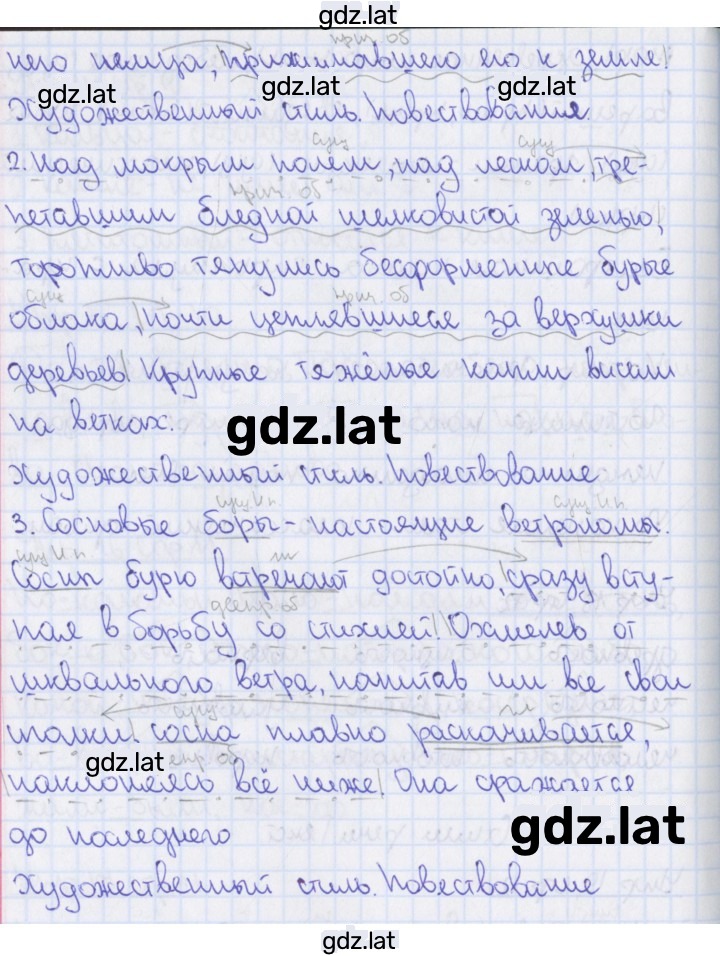 gdz.lat
прич. об
него немца, прижимавшего его к земле
gdz.lat gdz.lat gdz.lat
Художественный стиль. Повествования
сущ сущ
2. Над мокрым полем, над леском, |тре-
прич. об
петавшим бледной шелковистой зеленью|,
торопливо тянулись бесформенные бурые
сущ прич. об
облака, |почти цеплявшиеся за верхушки
деревьев| Крупные тяжёлые капли висели
на ветках.
gdz.lat
Художественный стиль. Повествование
сущ И п сущ И п
3. Сосновые боры - настоящие ветроломы.
сущ И п гл
Сосны бурю встречают достойно, |сразу всту-
дееприч об
пая в борьбу со стихией| |Охмелев от
шквального ветра, напитав им все свои
сущ гл
иголки| сосна плавно раскачивается,
gdz.lat
|наклоняясь всё ниже| Она сражается
gdz.lat
до последнего
Художественный стиль. Повествование
gdz.lat